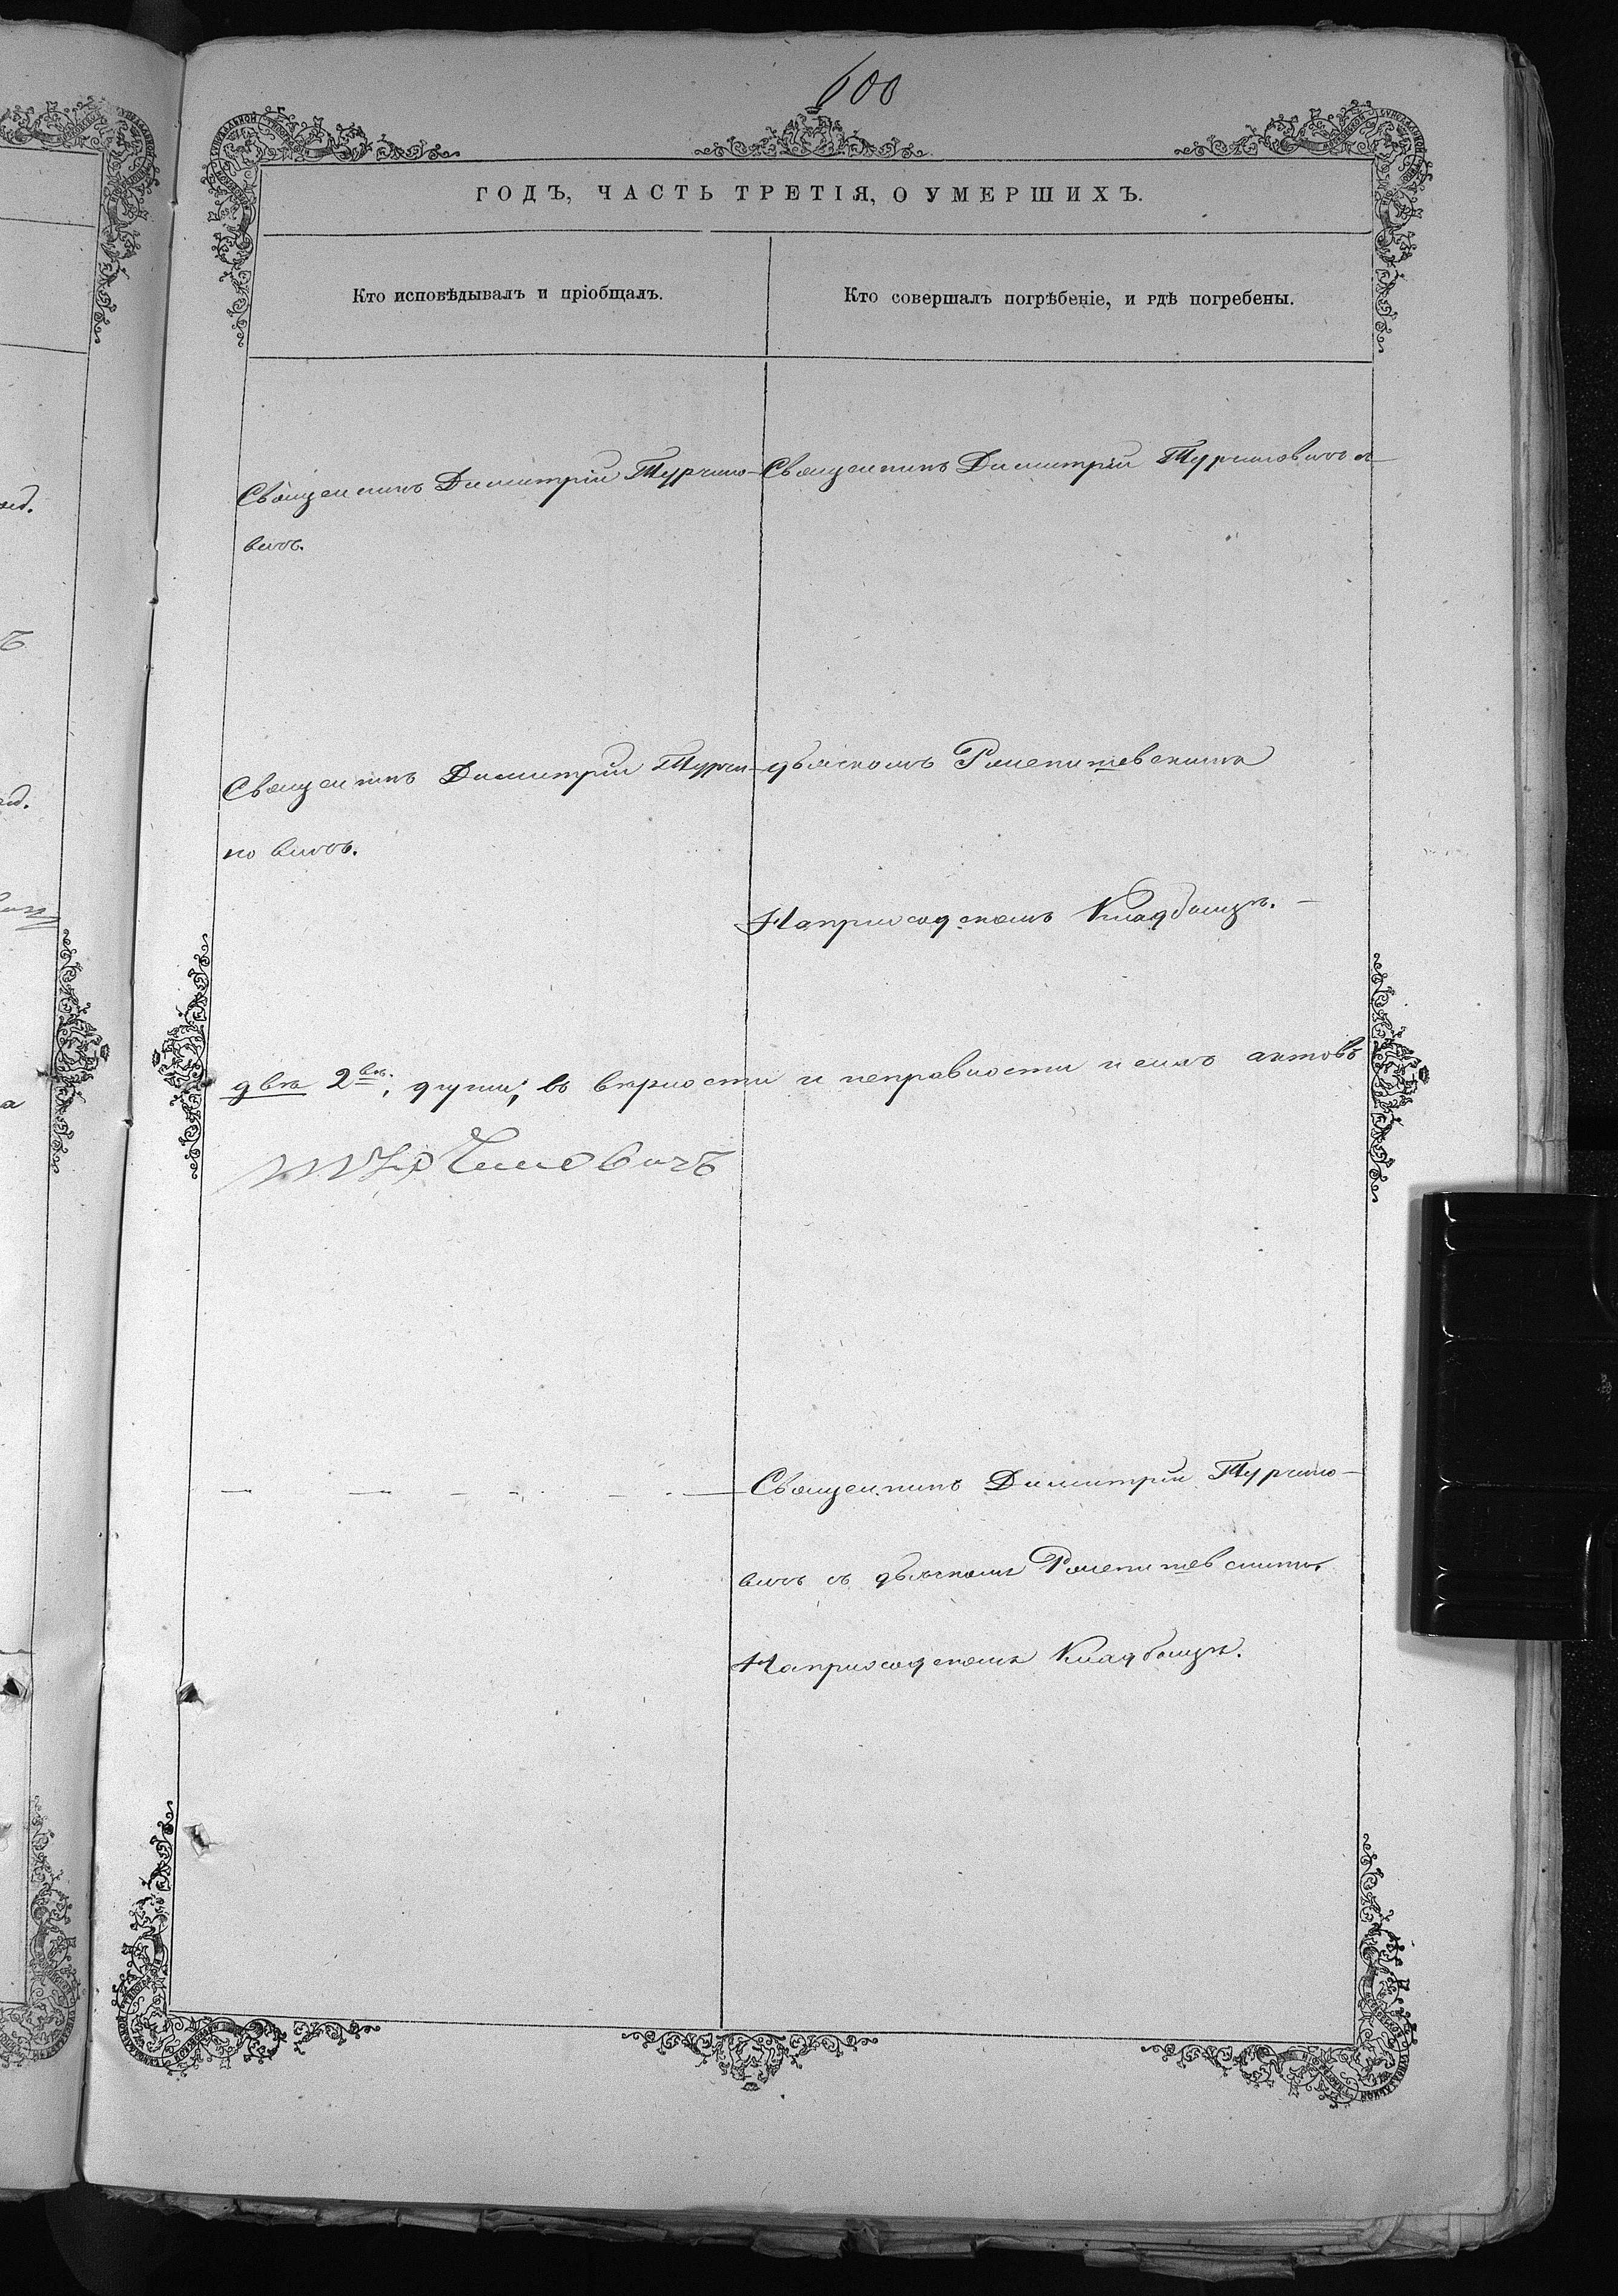 600
ГОДЪ, ЧАСТЬ ТРЕТІЯ, О УМЕРШИХЪ.
Кто исповѣдывалъ и пріобщалъ.
Кто совершалъ погрѣбеніе, и гдѣ погребены.
Священникъ Димитрій Турчино-
вичъ.
Священникъ Димитрій Турчиновичъ съ
Священникъ Димитрій Турчи-
новичъ.
дьячкомъ
На приходскомъ Кладбищѣ. —
двѣ 2вѣ. души; въ вѣрности и исправности и сихъ актовъ
Турчиновичъ
Священникъ Димитрій Турчино-
вичъ съ дьячкомъ
На приходскомъ Кладбищѣ.